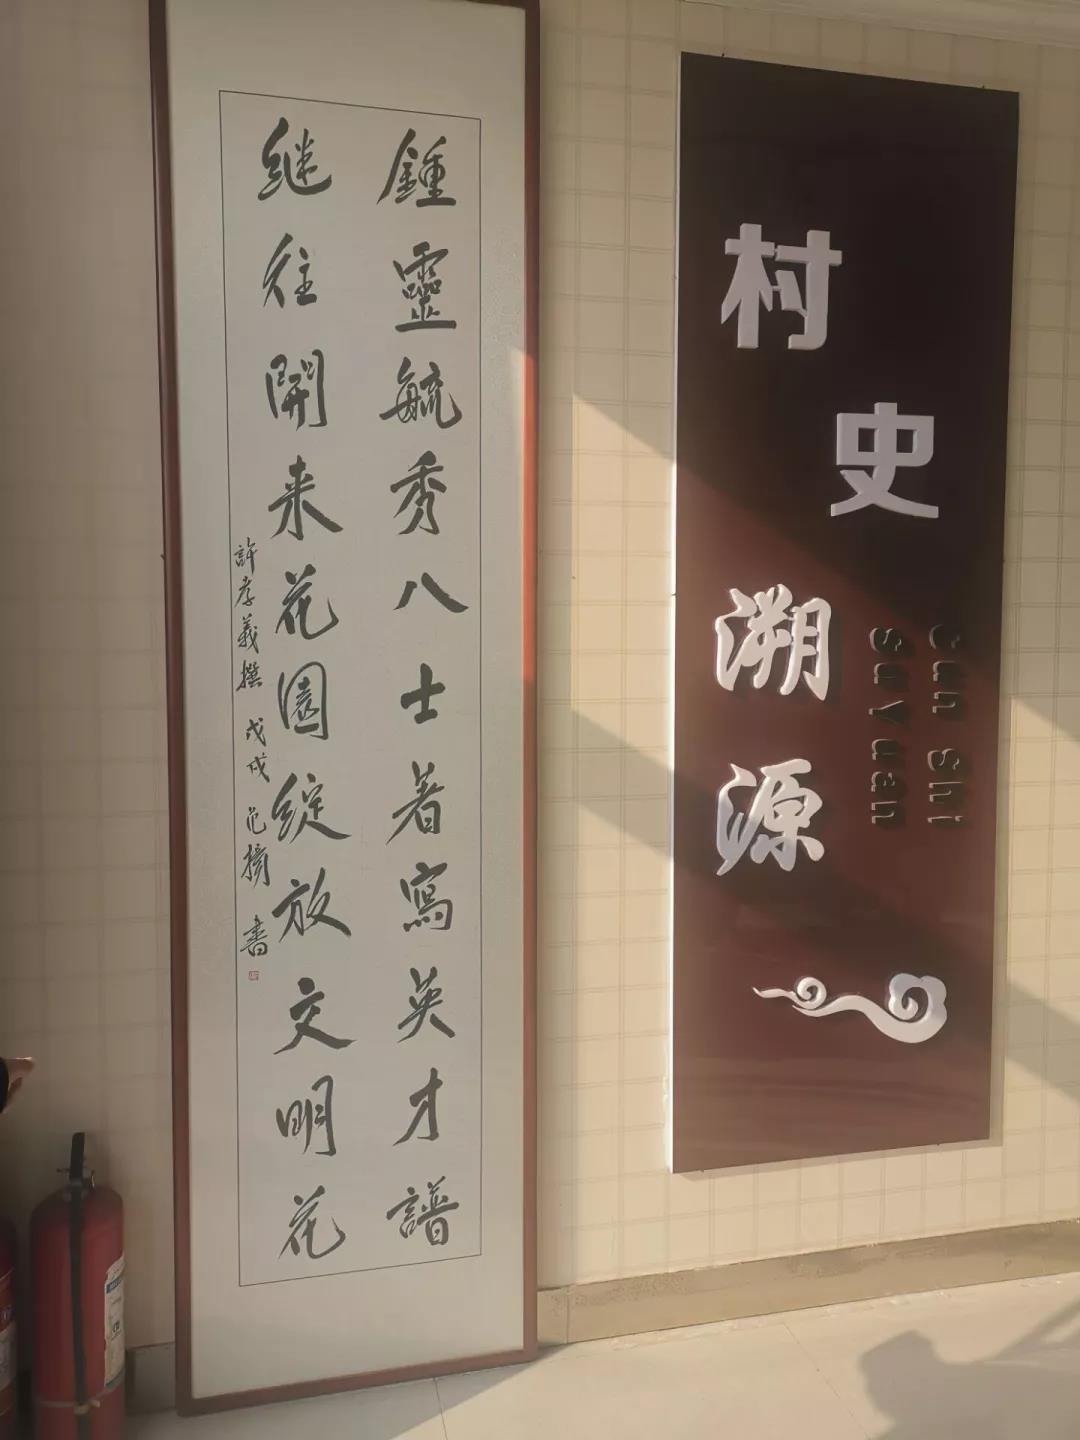 鍾靈毓秀八士著寫英才譜
继往開来花園綻放文明花
許孝義撰 戊戌 范擕 書
村史
溯源
Cun Shi
Su Yuan